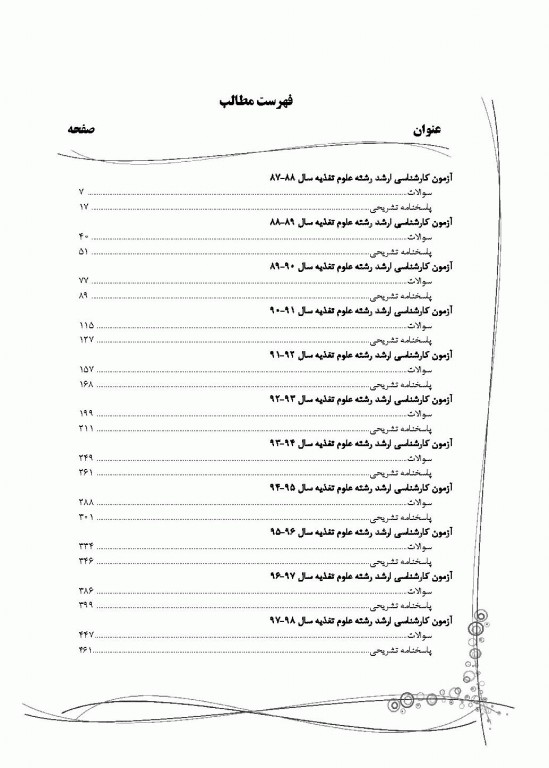 فهرست مطالب
عنوان صفحه
آزمون کارشناسی ارشد رشته علوم تغذیه سال ۸۸-۸۷
سوالات ۷
پاسخنامه تشریحی ۱۷
آزمون کارشناسی ارشد رشته علوم تغذیه سال ۸۹-۸۸
سوالات ۴۰
پاسخنامه تشریحی ۵۱
آزمون کارشناسی ارشد رشته علوم تغذیه سال ۹۰-۸۹
سوالات ۷۷
پاسخنامه تشریحی ۸۹
آزمون کارشناسی ارشد رشته علوم تغذیه سال ۹۱-۹۰
سوالات ۱۱۵
پاسخنامه تشریحی ۱۲۷
آزمون کارشناسی ارشد رشته علوم تغذیه سال ۹۲-۹۱
سوالات ۱۵۷
پاسخنامه تشریحی ۱۶۸
آزمون کارشناسی ارشد رشته علوم تغذیه سال ۹۳-۹۲
سوالات ۱۹۹
پاسخنامه تشریحی ۲۱۱
آزمون کارشناسی ارشد رشته علوم تغذیه سال ۹۴-۹۳
سوالات ۲۴۹
پاسخنامه تشریحی ۲۶۱
آزمون کارشناسی ارشد رشته علوم تغذیه سال ۹۵-۹۴
سوالات ۲۸۸
پاسخنامه تشریحی ۳۰۱
آزمون کارشناسی ارشد رشته علوم تغذیه سال ۹۶-۹۵
سوالات ۳۳۴
پاسخنامه تشریحی ۳۴۶
آزمون کارشناسی ارشد رشته علوم تغذیه سال ۹۷-۹۶
سوالات ۳۸۶
پاسخنامه تشریحی ۳۹۹
آزمون کارشناسی ارشد رشته علوم تغذیه سال ۹۸-۹۷
سوالات ۴۴۷
پاسخنامه تشریحی ۴۶۱